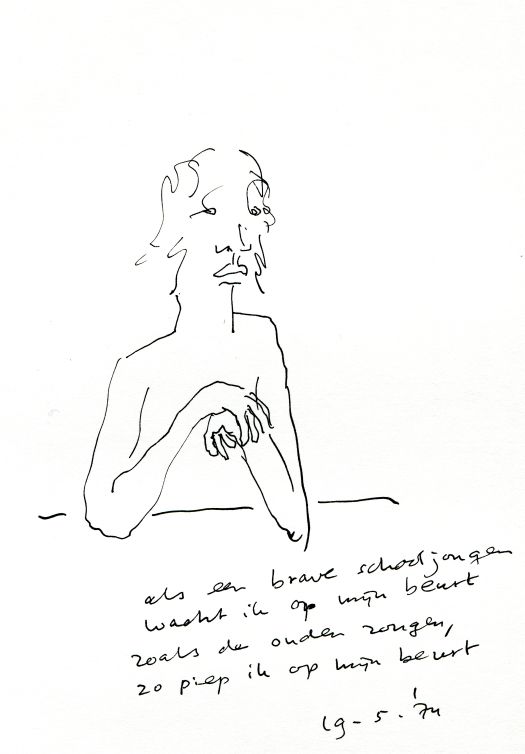 als een brave schooljongen
wacht ik op mijn beurt
zoals de ouden zongen,
zo piep ik op mijn beurt
19-5-'74